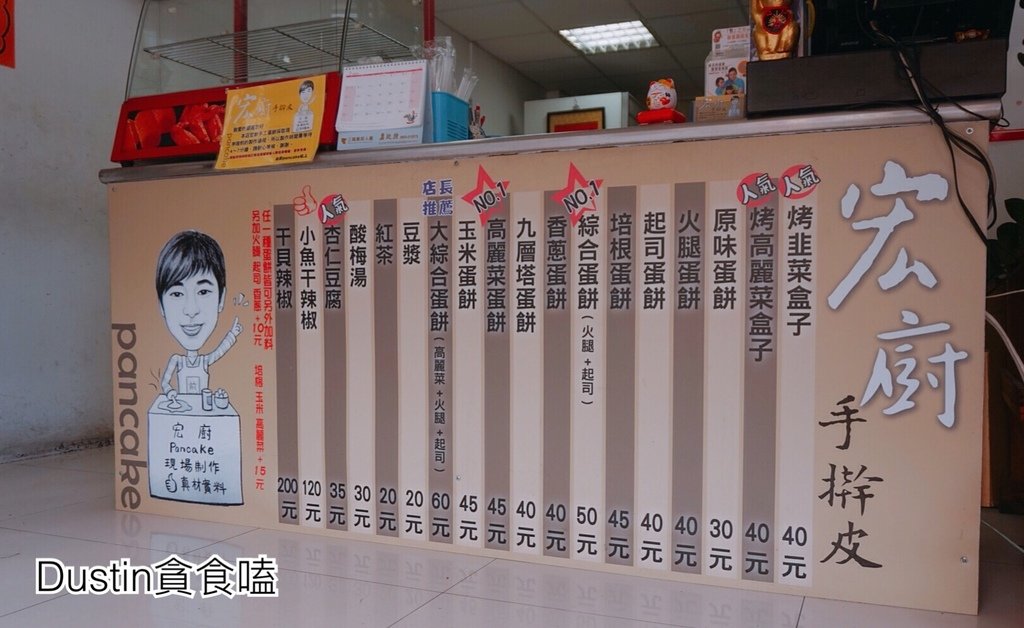 宏廚
手擀皮
烤韭菜盒子 40元
人氣
烤高麗菜盒子 40元
人氣
原味蛋餅 30元
火腿蛋餅 40元
起司蛋餅 40元
培根蛋餅 45元
綜合蛋餅(火腿+起司) 50元
NO.1
香蔥蛋餅 40元
九層塔蛋餅 40元
高麗菜蛋餅 45元
NO.1
玉米蛋餅 45元
大綜合蛋餅(高麗菜+火腿+起司) 60元
店長推薦
豆漿 20元
紅茶 20元
酸梅湯 30元
杏仁豆腐 35元
人氣
小魚干辣椒 120元
干貝辣椒 200元
任一種蛋餅皆可另外加料
另加火腿 起司 香蔥+10元
培根 玉米 高麗菜+15元
pancake
宏廚
Pancake
現場制作
真材實料
宏廚手擀皮
pancake
Dustin貪食嗑